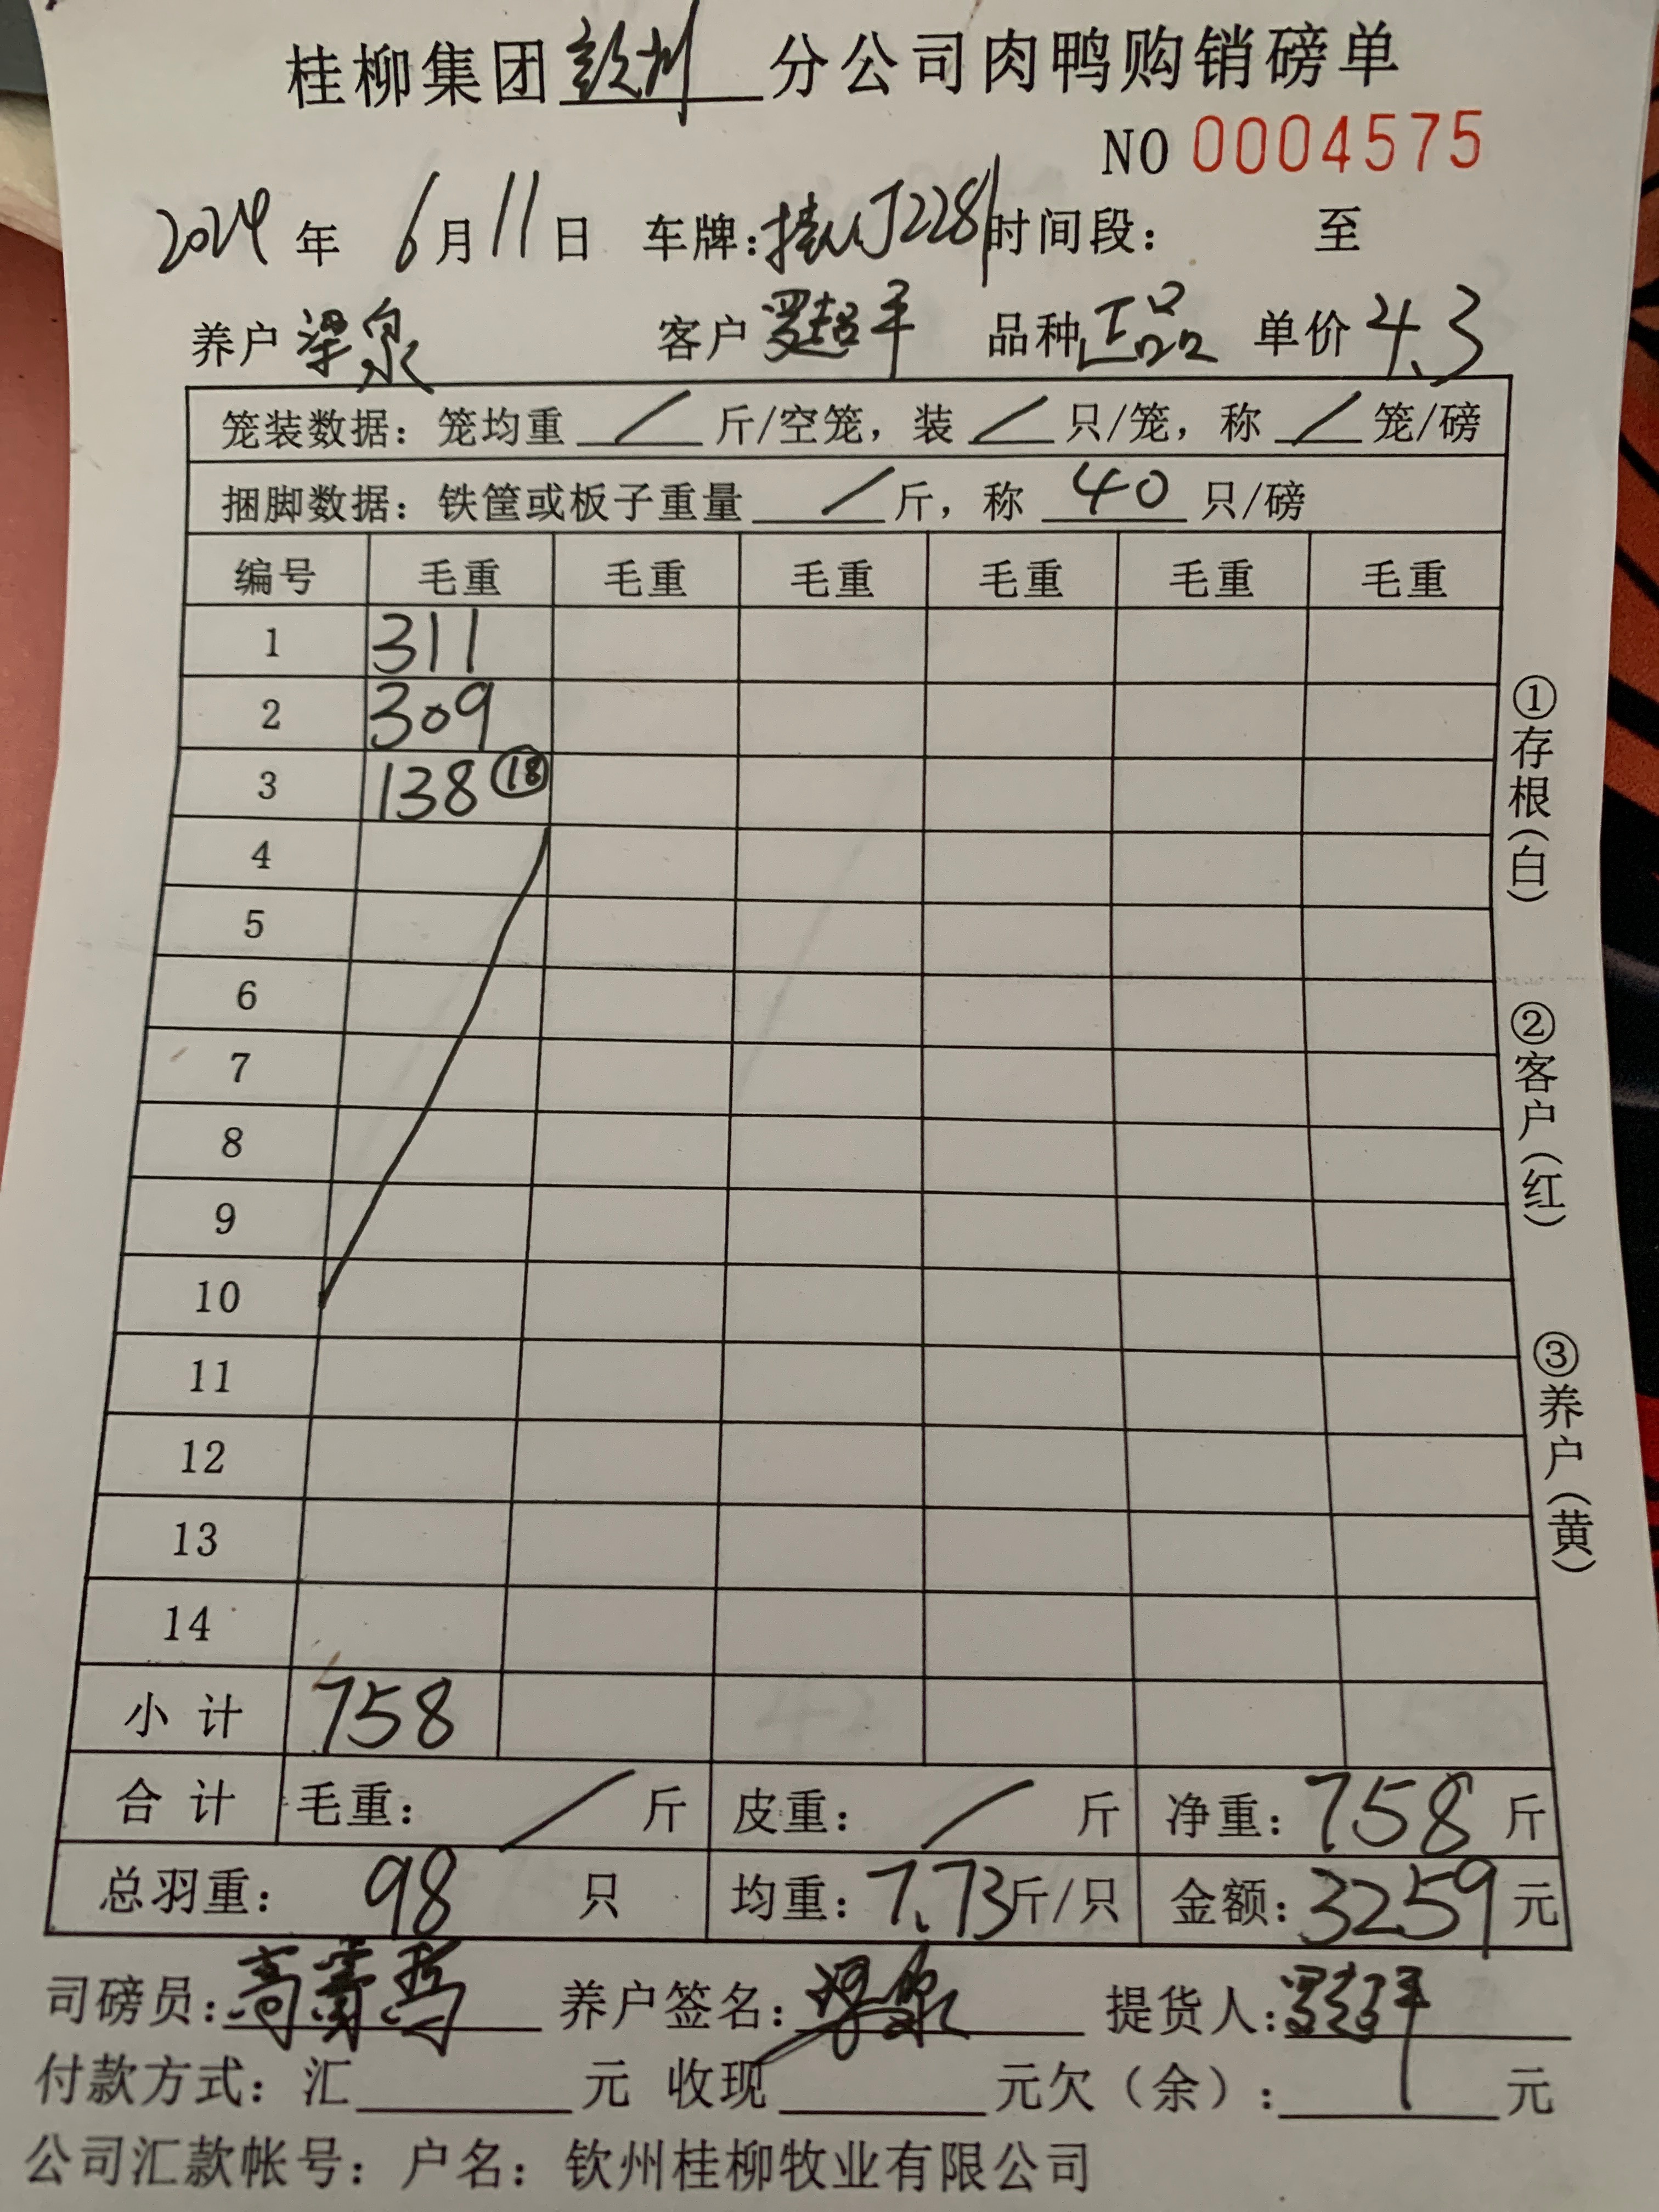 桂柳集团钦州分公司肉鸭购销磅单
NO 0004575
2024年 6月11日 车牌:桂NJ2281时间段: 至
养户 梁泉 客户 罗超平 品种 正品 单价 4.3
笼装数据:笼均重 / 斤/空笼,装 / 只/笼,称 / 笼/磅
捆脚数据:铁筐或板子重量 / 斤,称 40 只/磅
编号 毛重 毛重 毛重 毛重 毛重 毛重
1 311
2 309
3 138 ⑱
4
5
6
7
8
9
10
11
12
13
14
小计 758
合计 毛重: / 斤 皮重: / 斤 净重:758斤
总羽重: 98 只 均重:7.73斤/只 金额:3259元
司磅员: 养户签名:梁泉 提货人:罗超平
付款方式:汇 元 收现 元欠(余): 元
公司汇款帐号:户名:钦州桂柳牧业有限公司
①存根(白)
②客户(红)
③养户(黄)